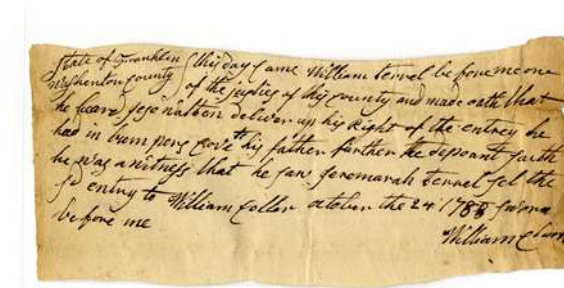 State of Franklin this day Came William terrel before me one
Washenton County of the justies of thy county and made oath that
he heard Jese nathen deliver up his Right of the entrey he
had in bumpers cove to his father further the deponant saith
he was a witness that he saw Jeremarah terrel sel the
sd entry to William Coller october the 24 1788
before me
William